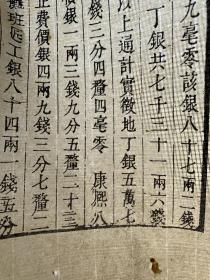 九毫零該銀八十七兩二錢
丁銀共七千三十一兩六錢
以上通計實徵地丁銀五萬七
三分四釐四毫零 康熙八
銀一兩三錢九分五釐二十三
費價銀四兩九錢三分七釐二
班匠工銀八十四兩一錢五分